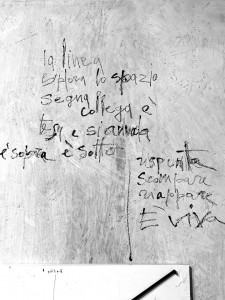 la linea
esplora lo spazio
segna
collega è
tesa e si annoda
è sopra è sotto
spunta
scompare
riappare
E viva